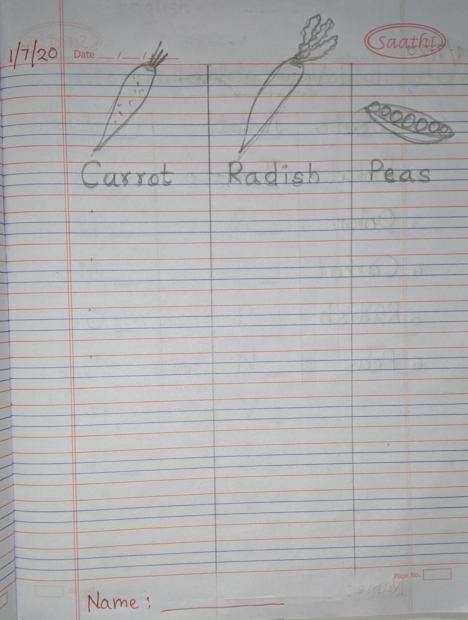 1/7/20 Date __/__/__ Saathi
Carrot Radish Peas
Page No.
Name : ____________